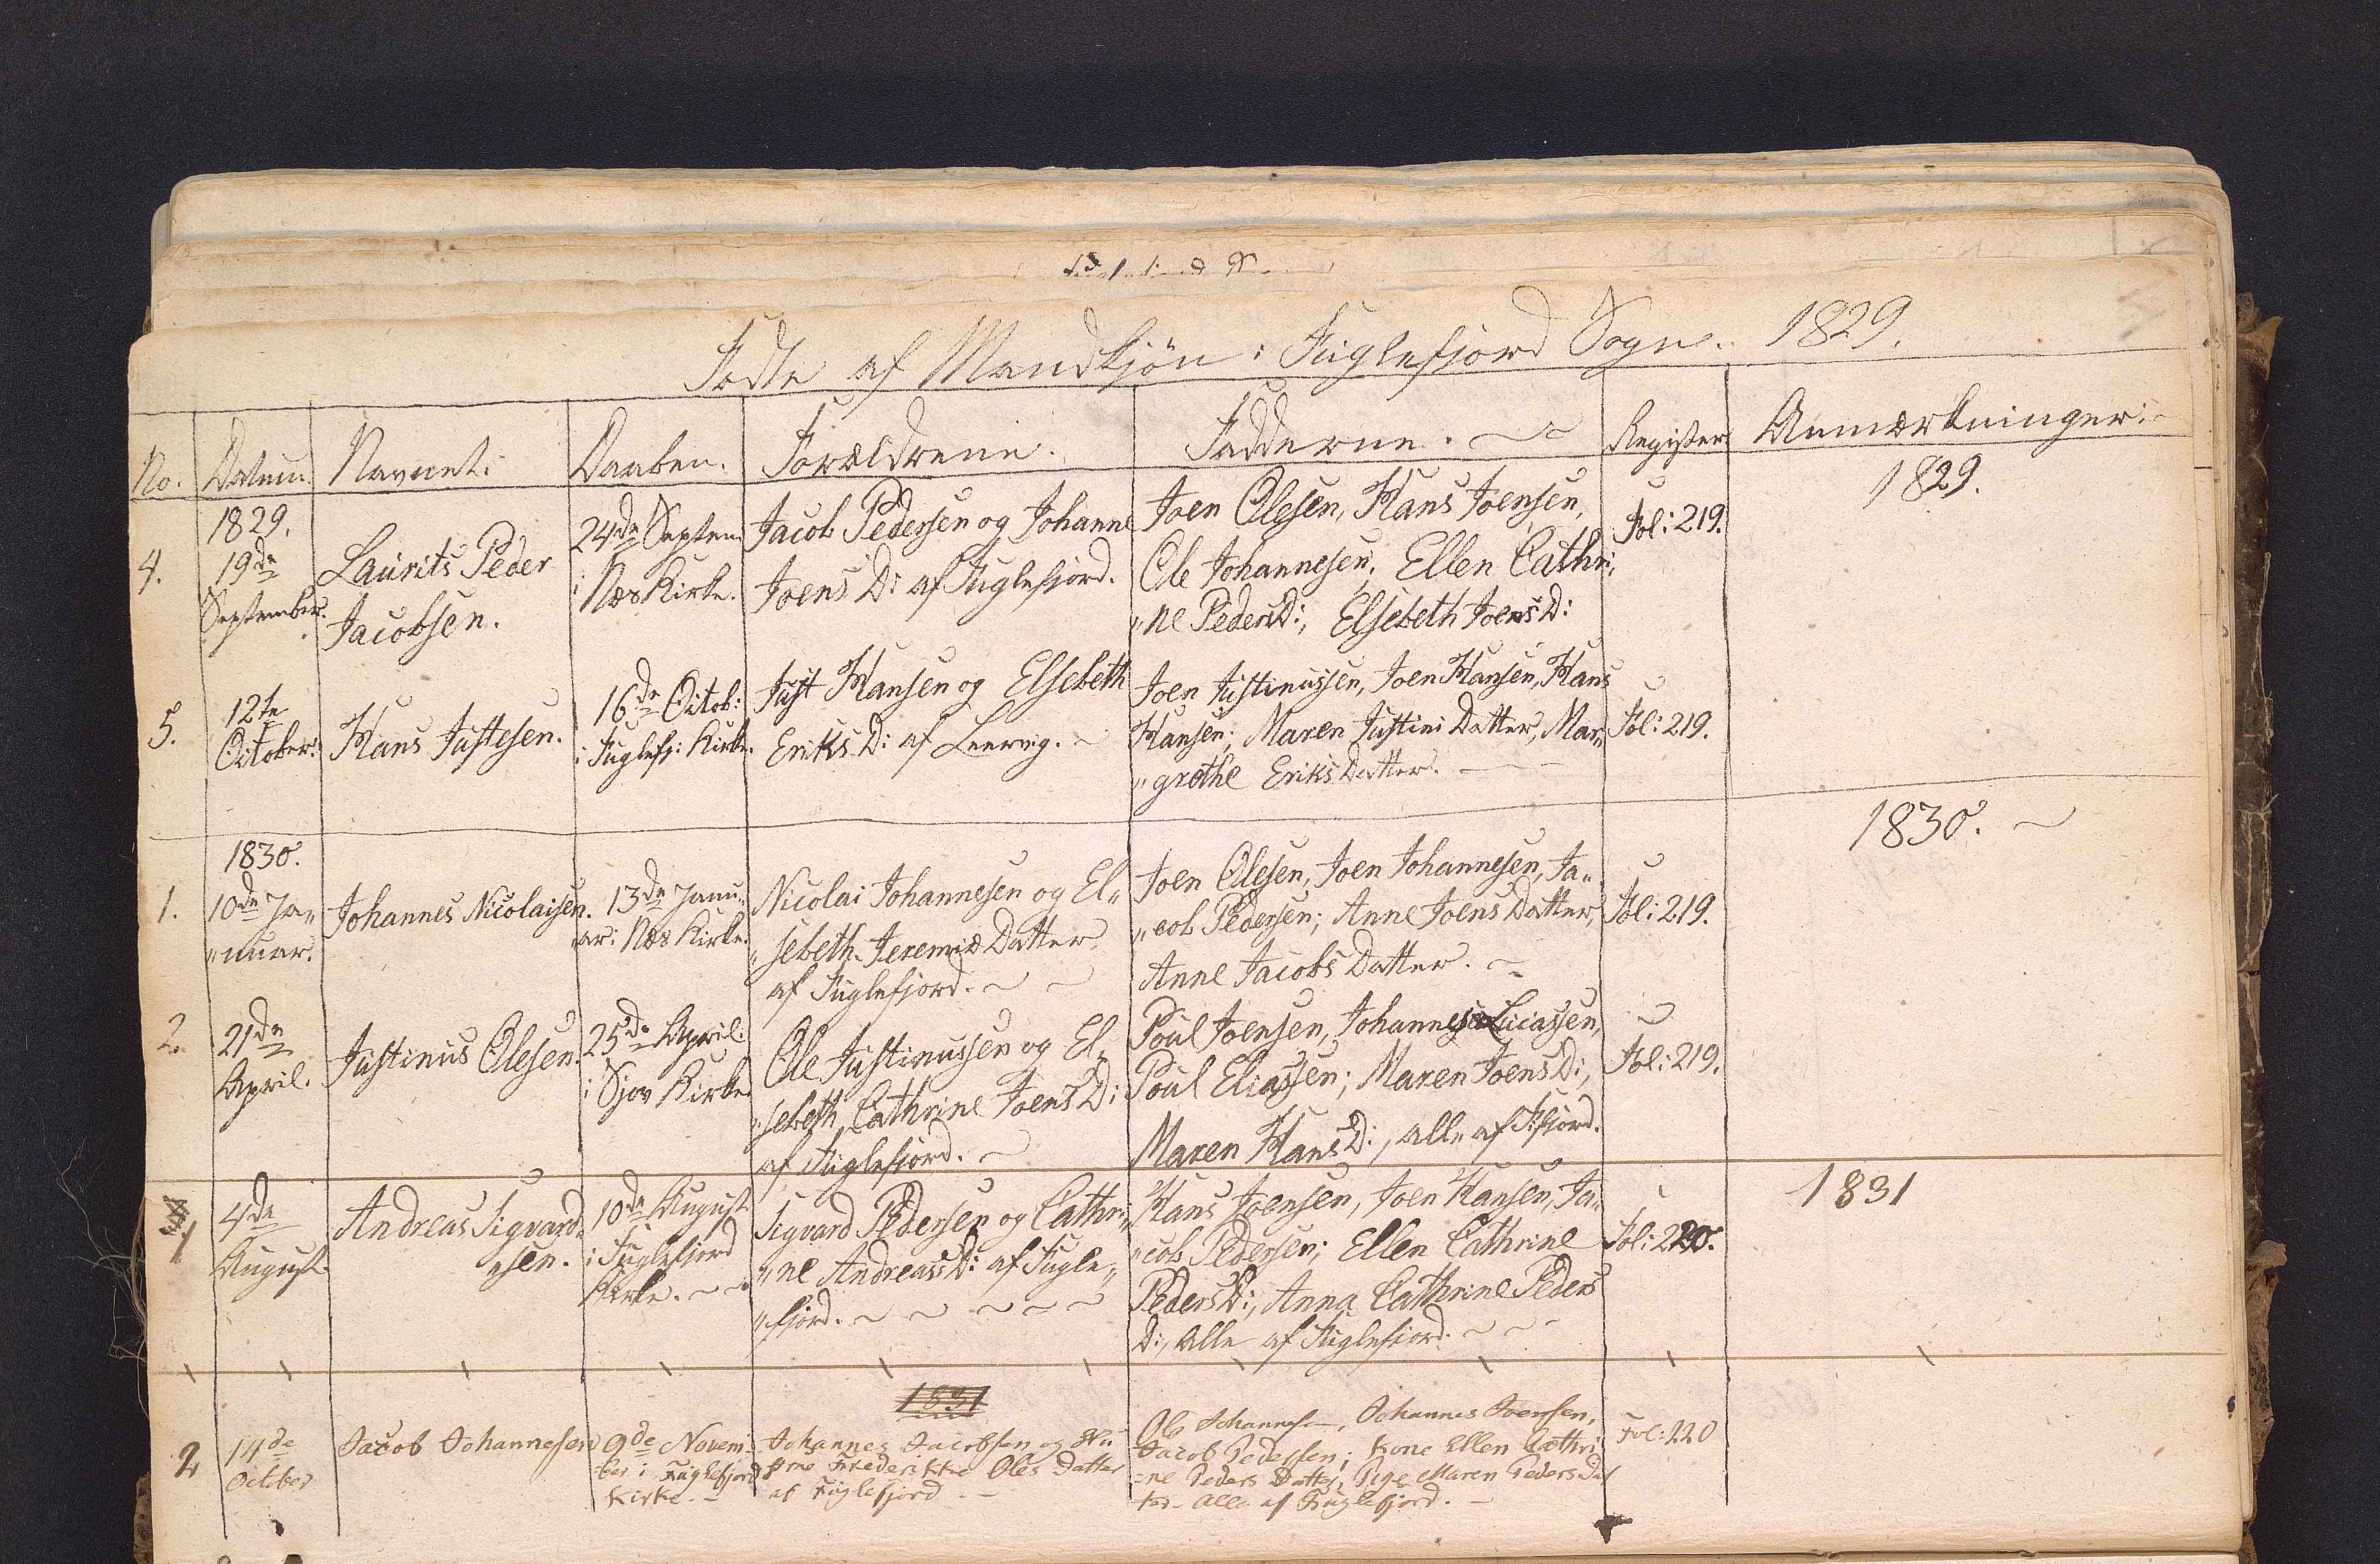 Fødte af Mandkjön i Fuglefjord Sogn. 1829.
No. Datum. Navnet. Daaben. Forældrene. Fadderne. Register Anmærkninger.
1829.
4.
19de
September.
Laurits Peder
Jacobsen.
24de Septem
i Næs Kirke.
Jacob Pedersen og Johanne
Joens D: af Fuglefjord.
Joen Olesen, Hans Joensen,
Ole Johannesen, Ellen Cathri,,
,,ne PedersD:, Elsebeth JoensD:
Fol: 219.
1829.
5.
12te
October.
Hans Justesen.
16de Octob:
i Fuglefj: Kirke.
Just Hansen og Elsebeth
Eriks D: af Leervig.
Joen Justinussen, Joen Hansen, Hans
Hansen; Maren Justini Datter, Mar,,
,,grethe Eriks Datter.
Fol: 219.
1830.
1.
10de Ja,,
,,nuar.
Johannes Nicolaisen.
13de Janu,,
ar i Næs Kirke.
Nicolai Johannesen og El,,
,,sebeth Jeremiæ Datter
af Fuglefjord.
Joen Olesen, Joen Johannesen, Ja,,
,,cob Pedersen; Anne Joens Datter,
Anne Jacobs Datter.
Fol: 219.
1830.
2.
21de
April.
Justinus Olesen.
25de April
i Sjov Kirke.
Ole Justinussen og El,,
,,sebeth Cathrine Joens D:
af Fuglefjord.
Poul Joensen, Johannes Lucassen,
Poul Eliassen; Maren JoensD:,
Maren HansD:, alle af F:fjord.
Fol: 219.
1
4de
August.
Andreas Sigvard,,
,,sen.
10de August
i Fuglefjord
Kirke.
Sigvard Pedersen og Cathri,,
,,ne AndreasD: af Fugle,,
,,fjord.
Hans Joensen, Joen Hansen, Ja,,
,,cob Pedersen; Ellen Cathrine
PedersD:, Anna Cathrine Peders
D:, alle af Fuglefjord.
Fol: 220.
1831
1831
2
14de
October
Jacob Johannesen
9de Novem-
ber i Fuglefjord
Kirke.
Johannes Jacobsen og Hu
strue Frederikke Oles Datter
af Fuglefjord.
Ole Johannesen, Johannes Joensen,
Jacob Pedersen; Kone Ellen Cathri
=ne Peders Datter, Pige Maren Peders Dat
ter. Alle af Fuglefjord.
Fol: 220